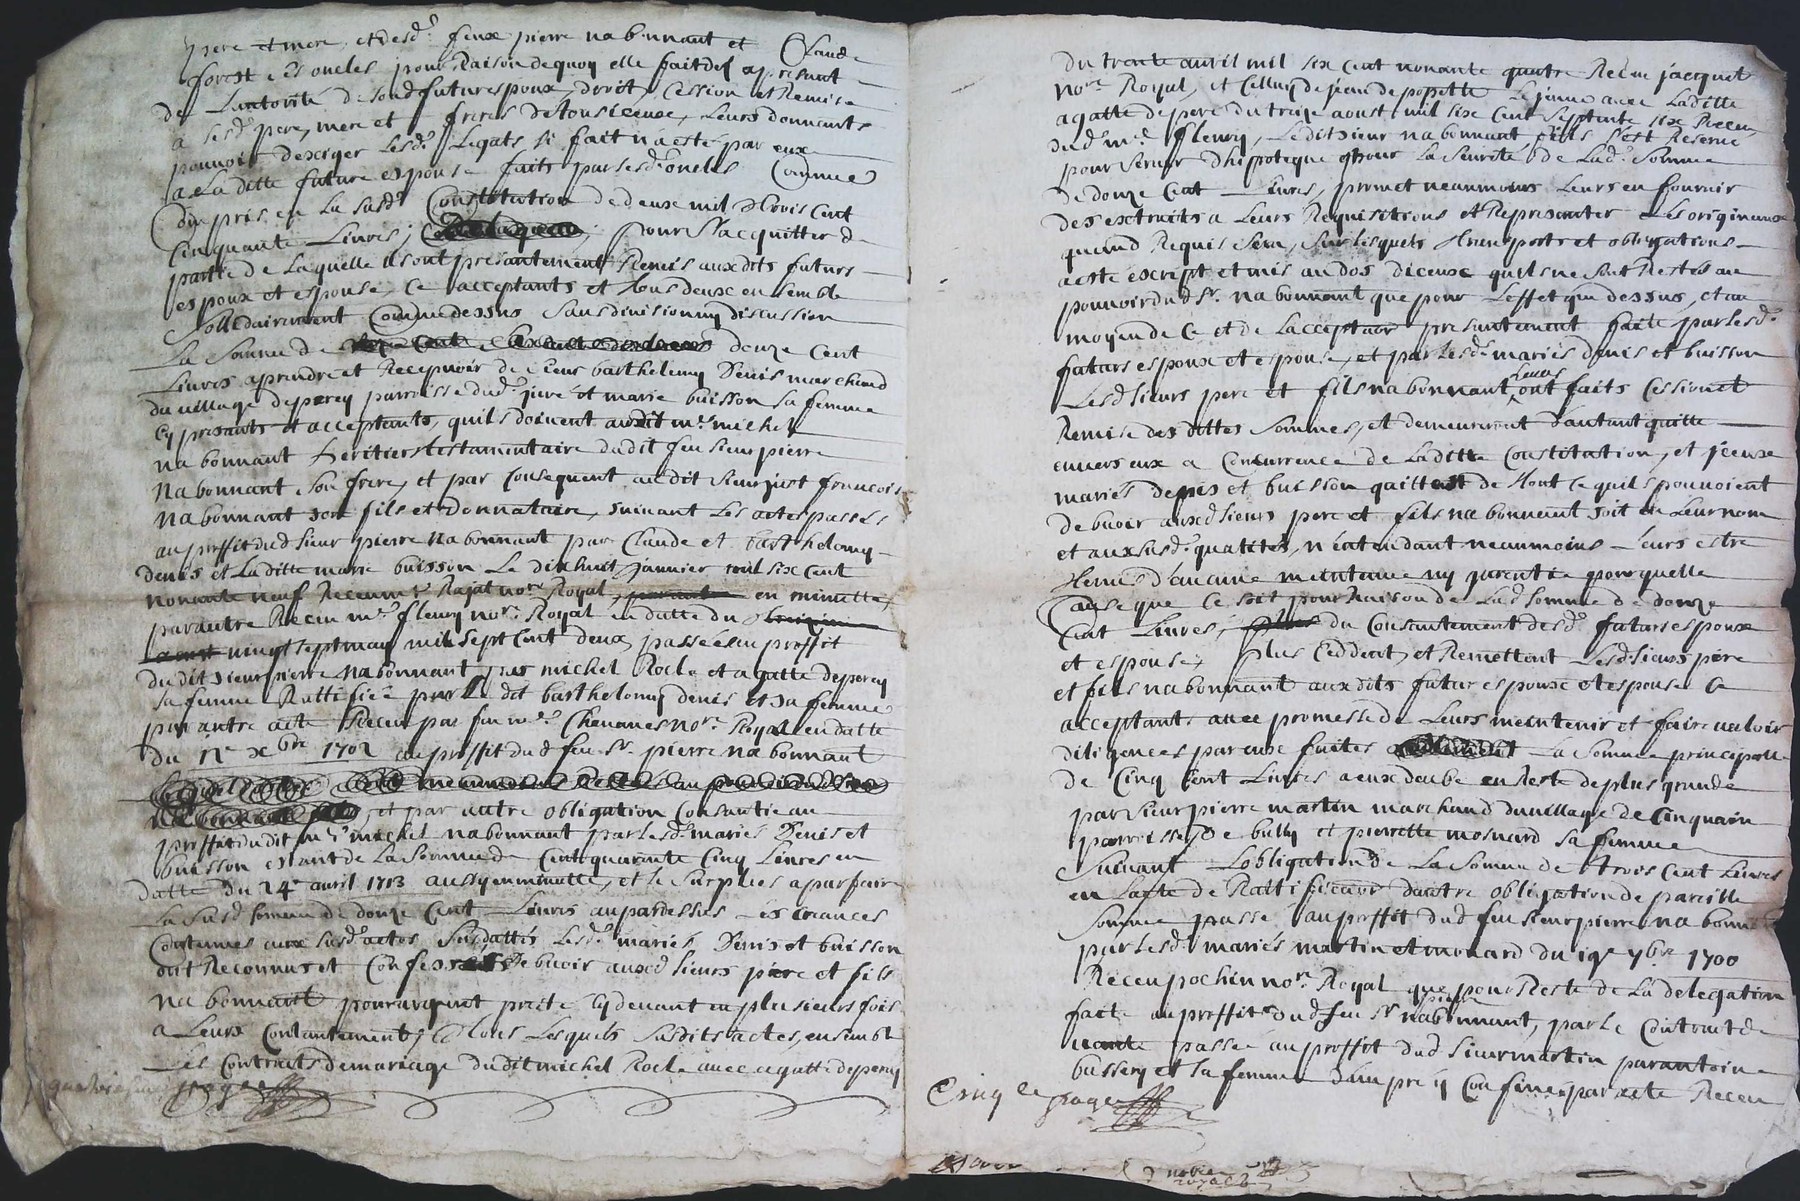 pere et mere, et desd. feux pierre nabonnant et Claude
forest ses oncles pour Raison de quoy elle fait des a presant
de Lautorité de sond futur espoux, droit, Cession et Remise
a sesd. pere, mere et freres de tous iceux, Leurs donnants
pouvoir dexiger lesd. Legats si fait n'a esté par eux
a Laditte future espouse faits par lesd. oncles Comme
Compris en La susd. Constitution de deux mil trois Cent
Cinquante Livres; pour S'acquitter de
partie de Laquelle ils ont presantement Remis auxdits futurs
espoux et espouse, Ce acceptants et tous deux ensemble
sollidairement Comme dessus sans division ny discussion
La Somme de douze Cent
Livres a prendre et Recepvoir de sieur barthelemy Denis marchand
du village deperey parroisse dud. juré et marie buisson sa femme
Cy presants et acceptants, quils doivent audit mre michel
nabonnant heritier testamentaire dudit feu sieur pierre
Nabonnant son frere, et par Consequent audit sieur just francois
Nabonnant son fils et donnataire, suivant Les actes passés
au proffit dud sieur pierre Nabonnant par Claude et barthelemy
denis et Laditte marie buisson Le dixhuit Janvier mil six Cent
nonante neuf Receu mre Rajat nore Royal, en minutte,
par autre Receu mre fleury nore Royal en datte du
vingt sept may mil sept Cent deux passée au proffit
du dit sieur pierre Nabonnant par michel Rocle et agatte deperey
sa femme Rattifiée par le dit barthelemy denis et sa femme
par autre acte Receu par feu mre Chavanes nore Royal en datte
du 1er xbre 1702 au proffit dud feu Sr. pierre nabonnant
neanmoins Restés au pouvoir dud sieur
nabonnant et par autre obligation Consantie au
proffit dudit mre michel nabonnant par lesd. mariés Denis et
buisson estant de La Somme de Cent quarante Cinq Livres en
datte du 24e avril 1713 aussy en minutte, et le Surplus a parfaire
La susd. somme de douze Cent Livres au pardessus Les Créances
Contenues aux susd. actes susdattés Lesd. mariés Denis et buisson
ont Reconnus et Confessés Debvoir auxd sieurs pere et fils
Nabonnant pour argent presté cy devant en plusieurs fois
a Leurs Contantement, tous Lesquels susdits actes, ensemble
Les Contrats de mariage dudit michel Rocle avec agatte deperey
quatrie page
du trente avril mil six Cent nonante quatre Receu jacquet
nore Royal, et Celluy de jean de Le jeune avec Laditte
agatte deperé du treize aoust mil six Cent septante six Receu
dud. mre fleury, Ledit sieur nabonnant fils S'est Reservé
pour servir d'hipoteque et pour La seureté de Lad. somme
de douze Cent Livres, promet neanmoins Leurs en fournir
des extraits a Leurs Requisitions et Representer Les originaux
quand Requis Sera, Sur lesquels transports et obligations
a esté escript et mis au dos d'iceux quils ne sont Restés au
pouvoir dud Sr. nabonnant que pour Leffet que dessus, et au
moyen de Ce et de Lacceptaon presantement faite par lesd.
futurs espoux et espouse, et par Lesd. mariés denis et buisson
Lesd sieurs pere et fils nabonnant Leurs ont faits Cession et
Remise des dittes Sommes, et demeureront d'autant quitte
envers eux a Concurrence de Laditte Constitution, et jceux
mariés denis et buisson quittent de tout ce quils pouvoient
debvoir auxd sieurs pere et fils nabonnant soit en Leur nom
et aux susd. qualités, n'entendant neanmoins Leurs estre
tenus d'aucune maintenue ny garentie pour quelle
Cause que Ce soit pour Raison de Lad somme de douze
Cent Livres, du Consentement desd. futurs espoux
et espouse, plus Ceddent, et Remettent Lesd sieurs pere
et fils nabonnant auxdits futur espoux et espouse Ce
acceptant avec promesse de Leurs maintenir et faire valoir
diligences par eux faites La Somme principalle
de Cinq Cent Livres a eux deube en Reste de plus grande
par sieur pierre martin marchand du village de Cinquain
parroisse de bully et pierrette monard sa femme
Suivant Lobligation de La somme de trois Cent Livres
en Lacte de Rattificaon dautre obligation de pareille
Somme passé au proffit dud feu sieur pierre nabonnant
par Lesd. mariés martin et monard du 19e 7bre 1700
Receu pochin nore Royal que pour Reste de La delegation
faite au proffit dud feu Sr pierre nabonnant, par le Contrat de
vante passée au proffit dud sieur martin par antoine
bussery et sa femme dun pré y Confiné par acte Receu
Cinq e page